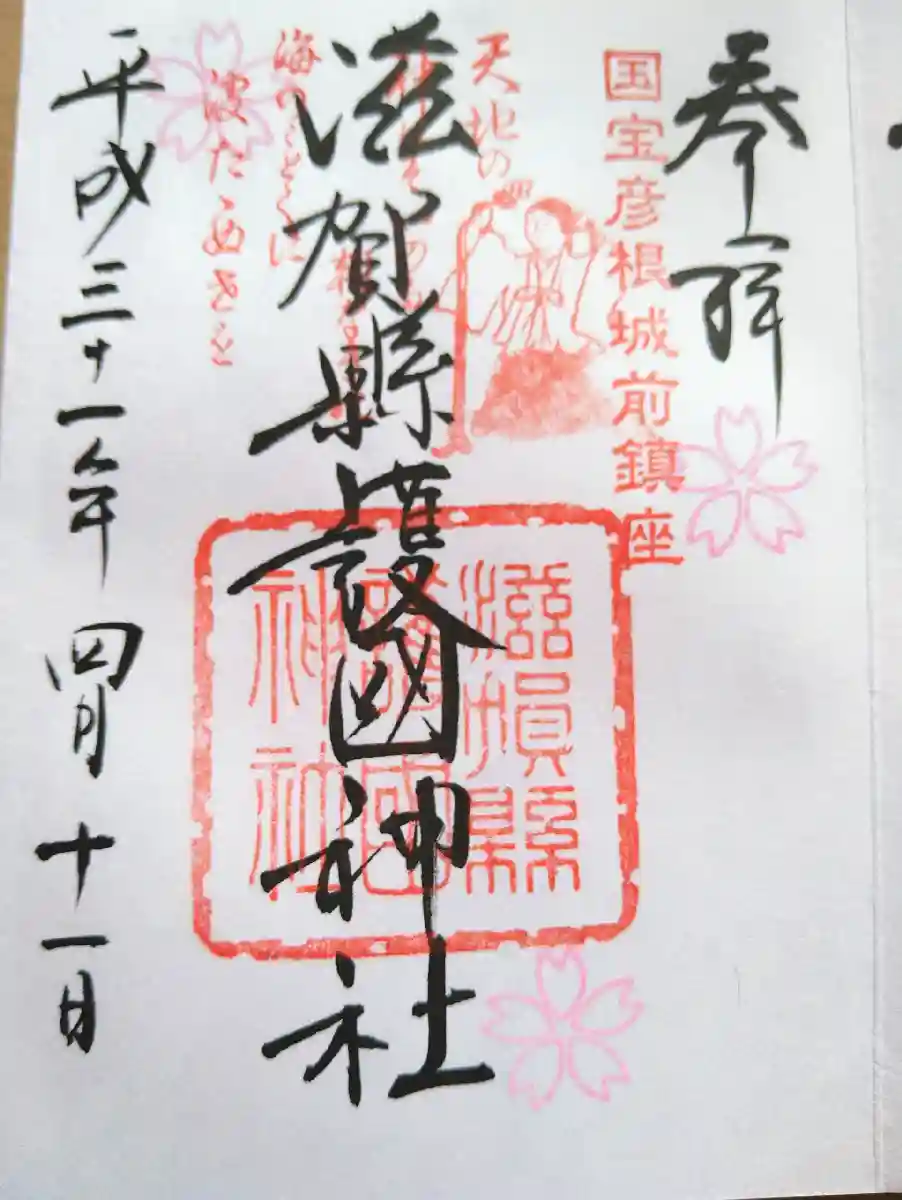 奉拜
国宝彦根城前鎮座
天地の
海のごとくに
波たゝぬきを
滋賀縣護國神社
滋賀縣
護國
神社
平成三十一年四月十一日